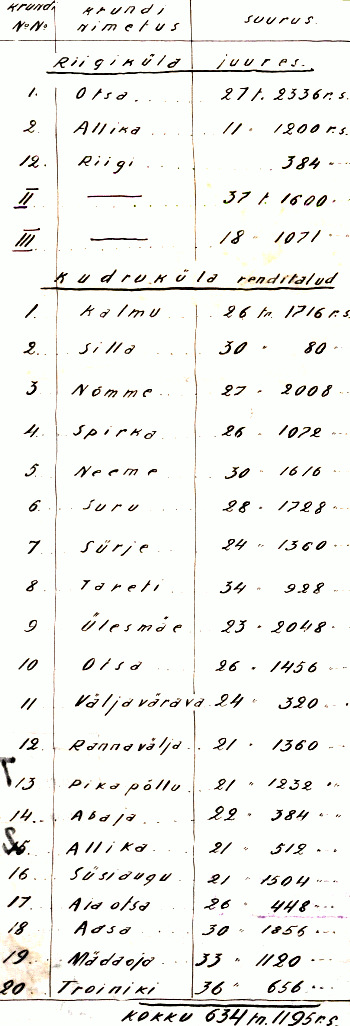 Krundi Krundi suurus.
№№ nimetus
Riigiküla juures.
1. Otsa 27 t. 2336 r.s.
2. Allika 11 " 1200 r.s.
12. Riigi 384 "
II — 37 t. 1600 "
III — 18 " 1071 "
Kudruküla renditalud
1. Kalmu 26 tn. 1716 r.s.
2. Silla 30 " 80 "
3 Nõmme 27 " 2008 "
4. Spirka 26 " 1072 "
5 Neeme 30 " 1616 "
6 Suru 28 " 1728 "
7 Sürje 24 " 1360 "
8 Tareti 34 " 928 "
9 Ülesmäe 23 " 2048 "
10 Otsa 26 " 1456 "
11 Väljavärava 24 " 320 "
12 Rannavälja 21 " 1360 "
13 Pikapõllu 21 " 1232 "
14. Abaja 22 " 384 "
15. Allika 21 " 512 "
16 Süsiaugu 21 " 1504 "
17 Aiaotsa 26 " 448 "
18 Aasa 30 " 1856 "
19. Mädaoja 33 " 1120 "
20. Troiniki 36 " 656 "
Kokku 634 tn. 1195 r.s.